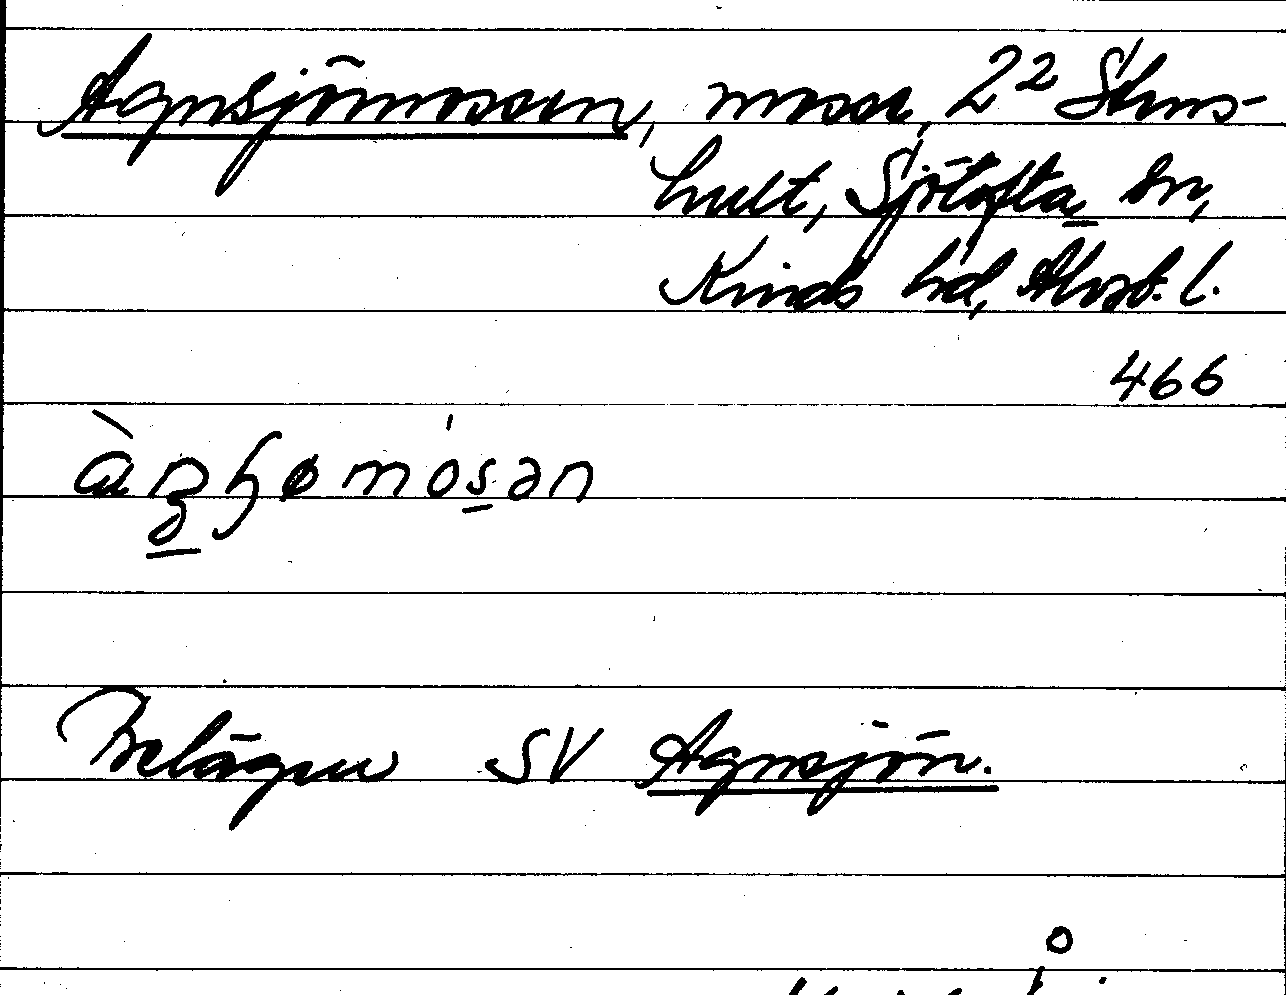 Agnsjömossen, mosse, 2² Stens-
hult, Sjötofta sn,
Kinds hd, Älvsb. l.
466
Belägen SV Agnsjön.